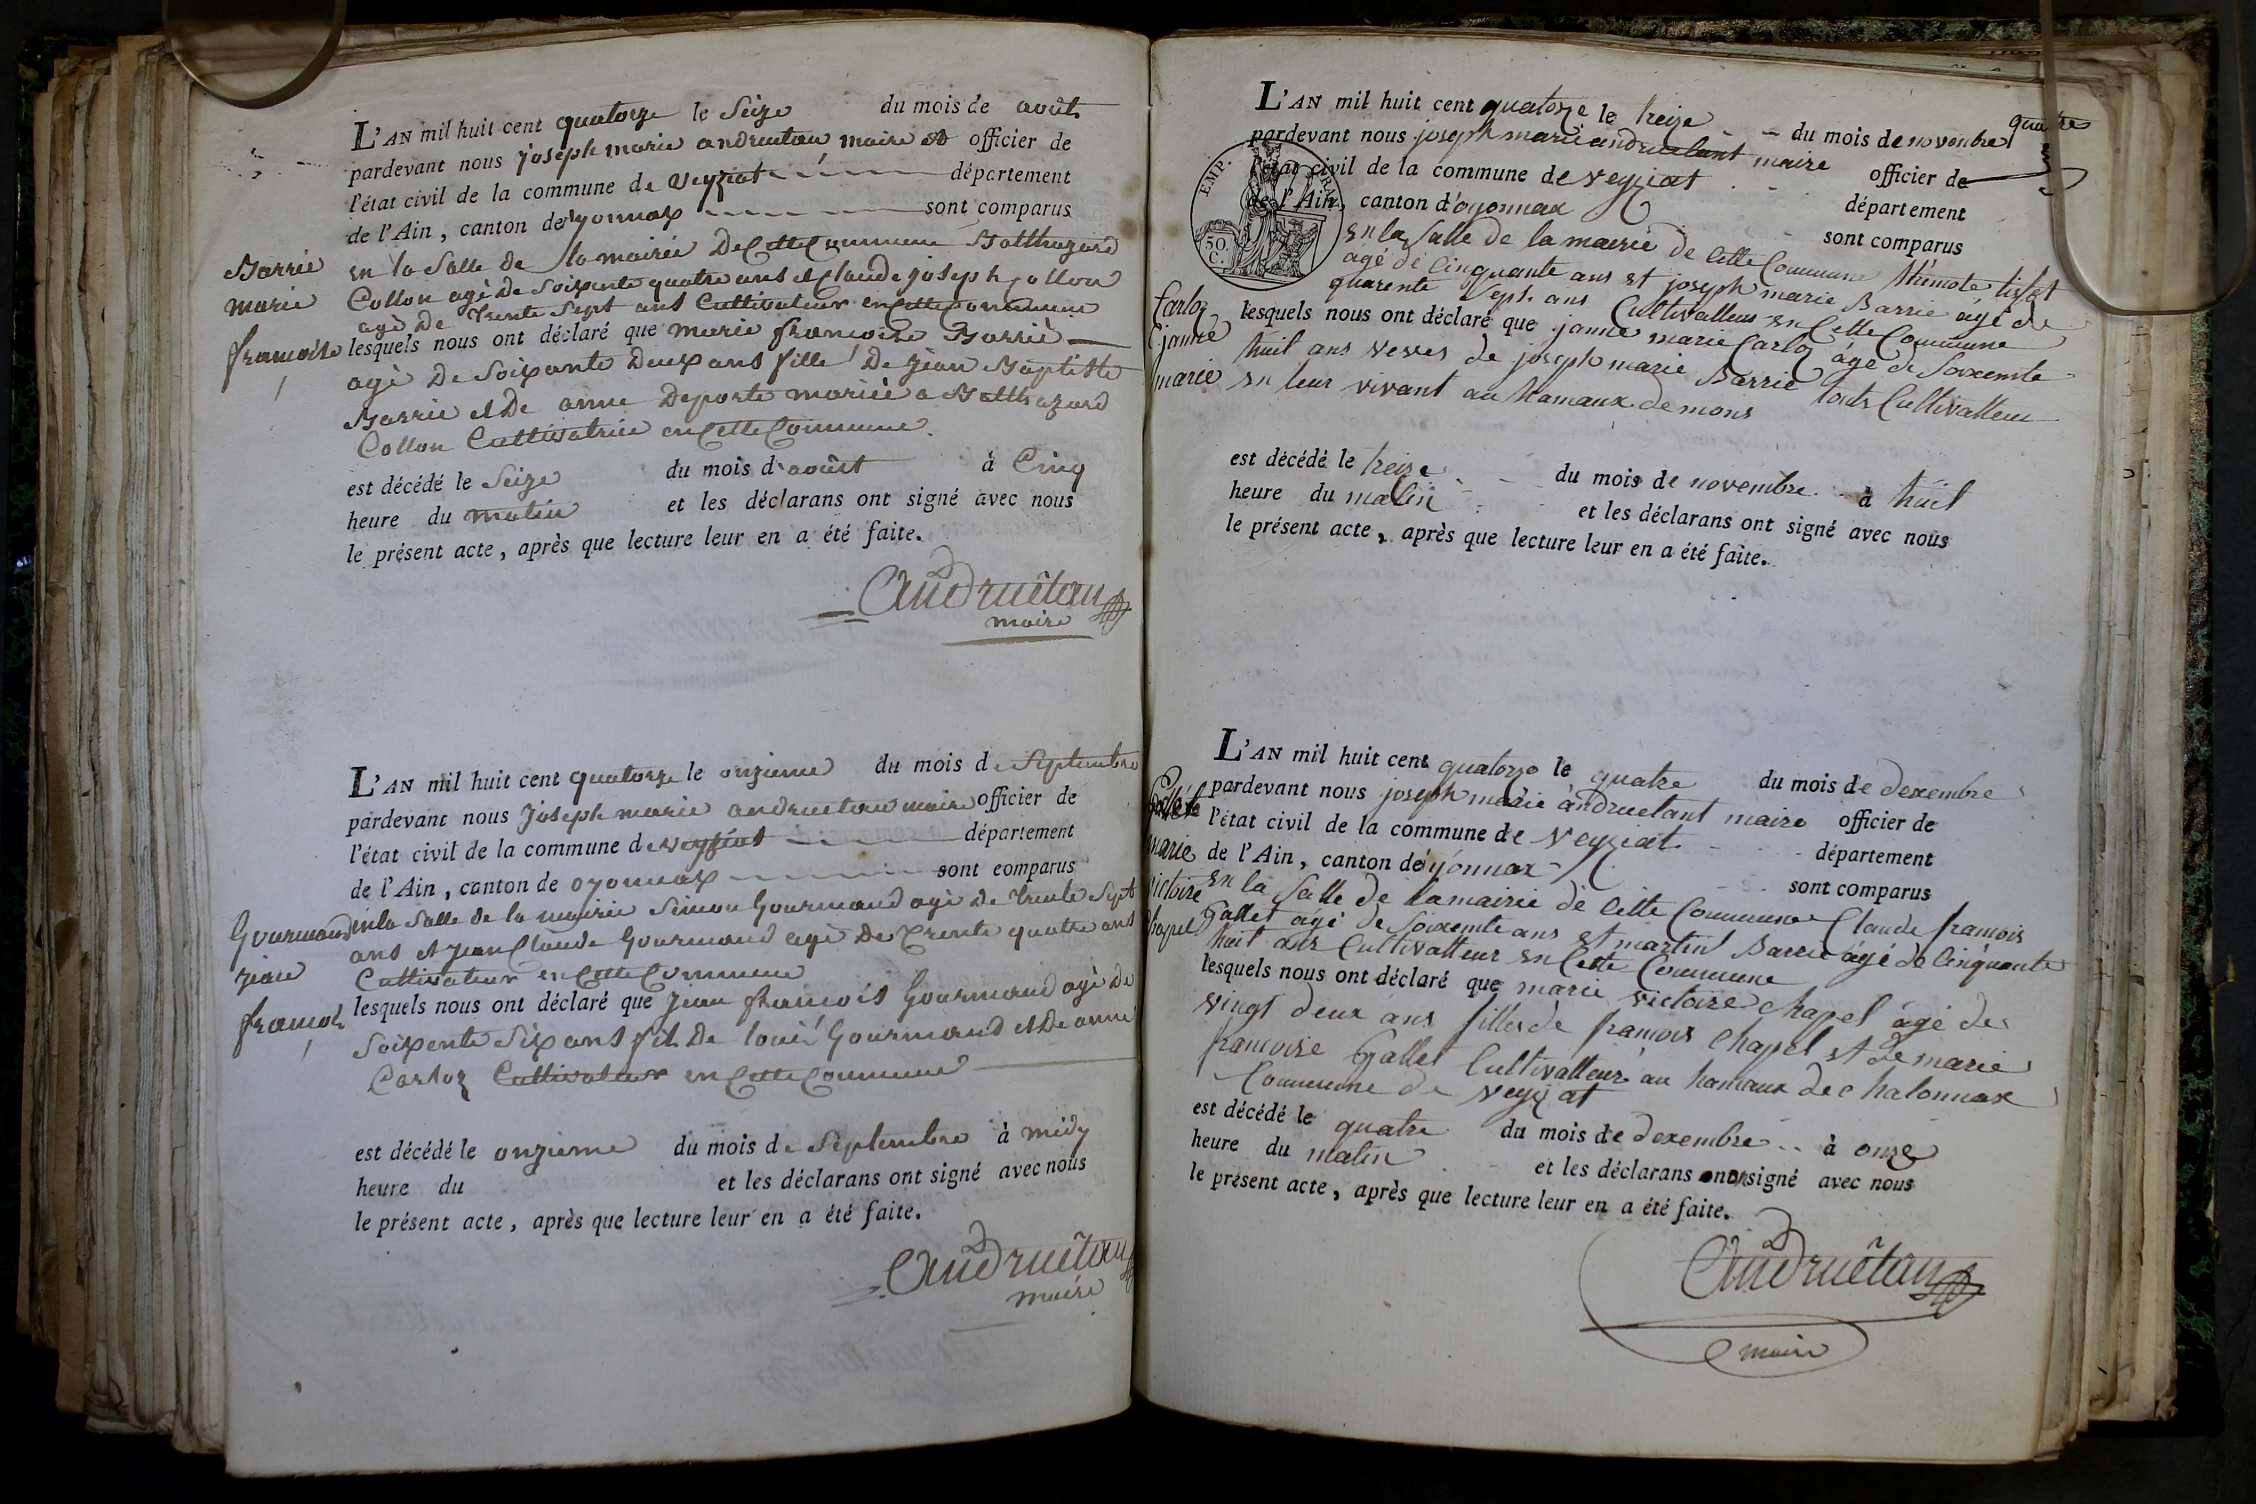 L'AN mil huit cent quatorze le Seize du mois de août
pardevant nous joseph marie andruetan maire et officier de
l'état civil de la commune de Veyziat département
de l'Ain, canton de oyonnax sont comparus
en la Salle de la mairie De Cette Commune Balthazard
Collon agé De Soixente quatre ans et Claude joseph Collon
agé De Trente Sept ans Cultivateur en Cette Commune
lesquels nous ont déclaré que marie francoise Barrié
agé De Soixante Deux ans fille De Jean Baptiste
Barrié et De anne Deporte marièè a Balthazard
Collon Cultivatrice en Cette Commune
est décédé le Seize du mois d'aoûst à Cinq
heure du matin et les déclarans ont signé avec nous
le présent acte, après que lecture leur en a été faite.
Andruétan
maire
Barrié
marie
francoise
L'AN mil huit cent quatorze le onzieme du mois de Septembre
pardevant nous Joseph marie andruetan maire officier de
l'état civil de la commune de veyziat département
de l'Ain, canton de oyonnax sont comparus
en la Salle de la mairie Simon Gourmand agé de Trente Sept
ans et Jean Claude Gourmand agé De Trente quatre ans
Cultivateur en Cette Commune
lesquels nous ont déclaré que Jean francois Gourmand agé de
Soixente Six ans fils De louis Gourmand et De anne
Carloz Cultivateur en Cette Commune
est décédé le onzieme du mois de Septembre à midy
heure du et les déclarans ont signé avec nous
le présent acte, après que lecture leur en a été faite.
Andruétan
maire
Gourmand
jean
francois
quatre
L'AN mil huit cent quatorze le treize du mois de novembre
pardevant nous joseph marie andruetant maire officier de
l'état civil de la commune de veyziat département
de l'Ain, canton d'oyonnax sont comparus
EMP. FRA.
50.
C.
en la Salle de la mairie de Cette Commune thimoté tissot
agé de Cinquante ans et joseph marie Barrié agé de
quarente Sept ans Cultivatteur en Cette Commune
lesquels nous ont déclaré que janne marie Carloz agé de Soixente
huit ans veves de joseph marie Barrié touts Cultivatteur
en leur vivant au hamaux de mons
est décédé le treize du mois de novembre à huit
heure du matin et les déclarans ont signé avec nous
le présent acte, après que lecture leur en a été faite.
Carloz
janne
marie
L'AN mil huit cent quatorze le quatre du mois de dexembre
pardevant nous joseph marie andruetant maire officier de
l'état civil de la commune de veyziat département
de l'Ain, canton d'oyonnax sont comparus
en la Salle de la mairie de Cette Commune Claude francois
Gallet agé de Soixente ans et martin Barrié agé de Cinquante
huit ans Cultivatteur en Cette Commune
lesquels nous ont déclaré que marie victoire chapel agé de
vingt deux ans filles de francois chapel et de marie
francoise Gallet Cultivatteur au hamaux de chatonnax
Commune de veyziat
est décédé le quatre du mois de dexembre à onze
heure du matin et les déclarans non signé avec nous
le présent acte, après que lecture leur en a été faite.
Andruétan
maire
marie
victoire
chapel